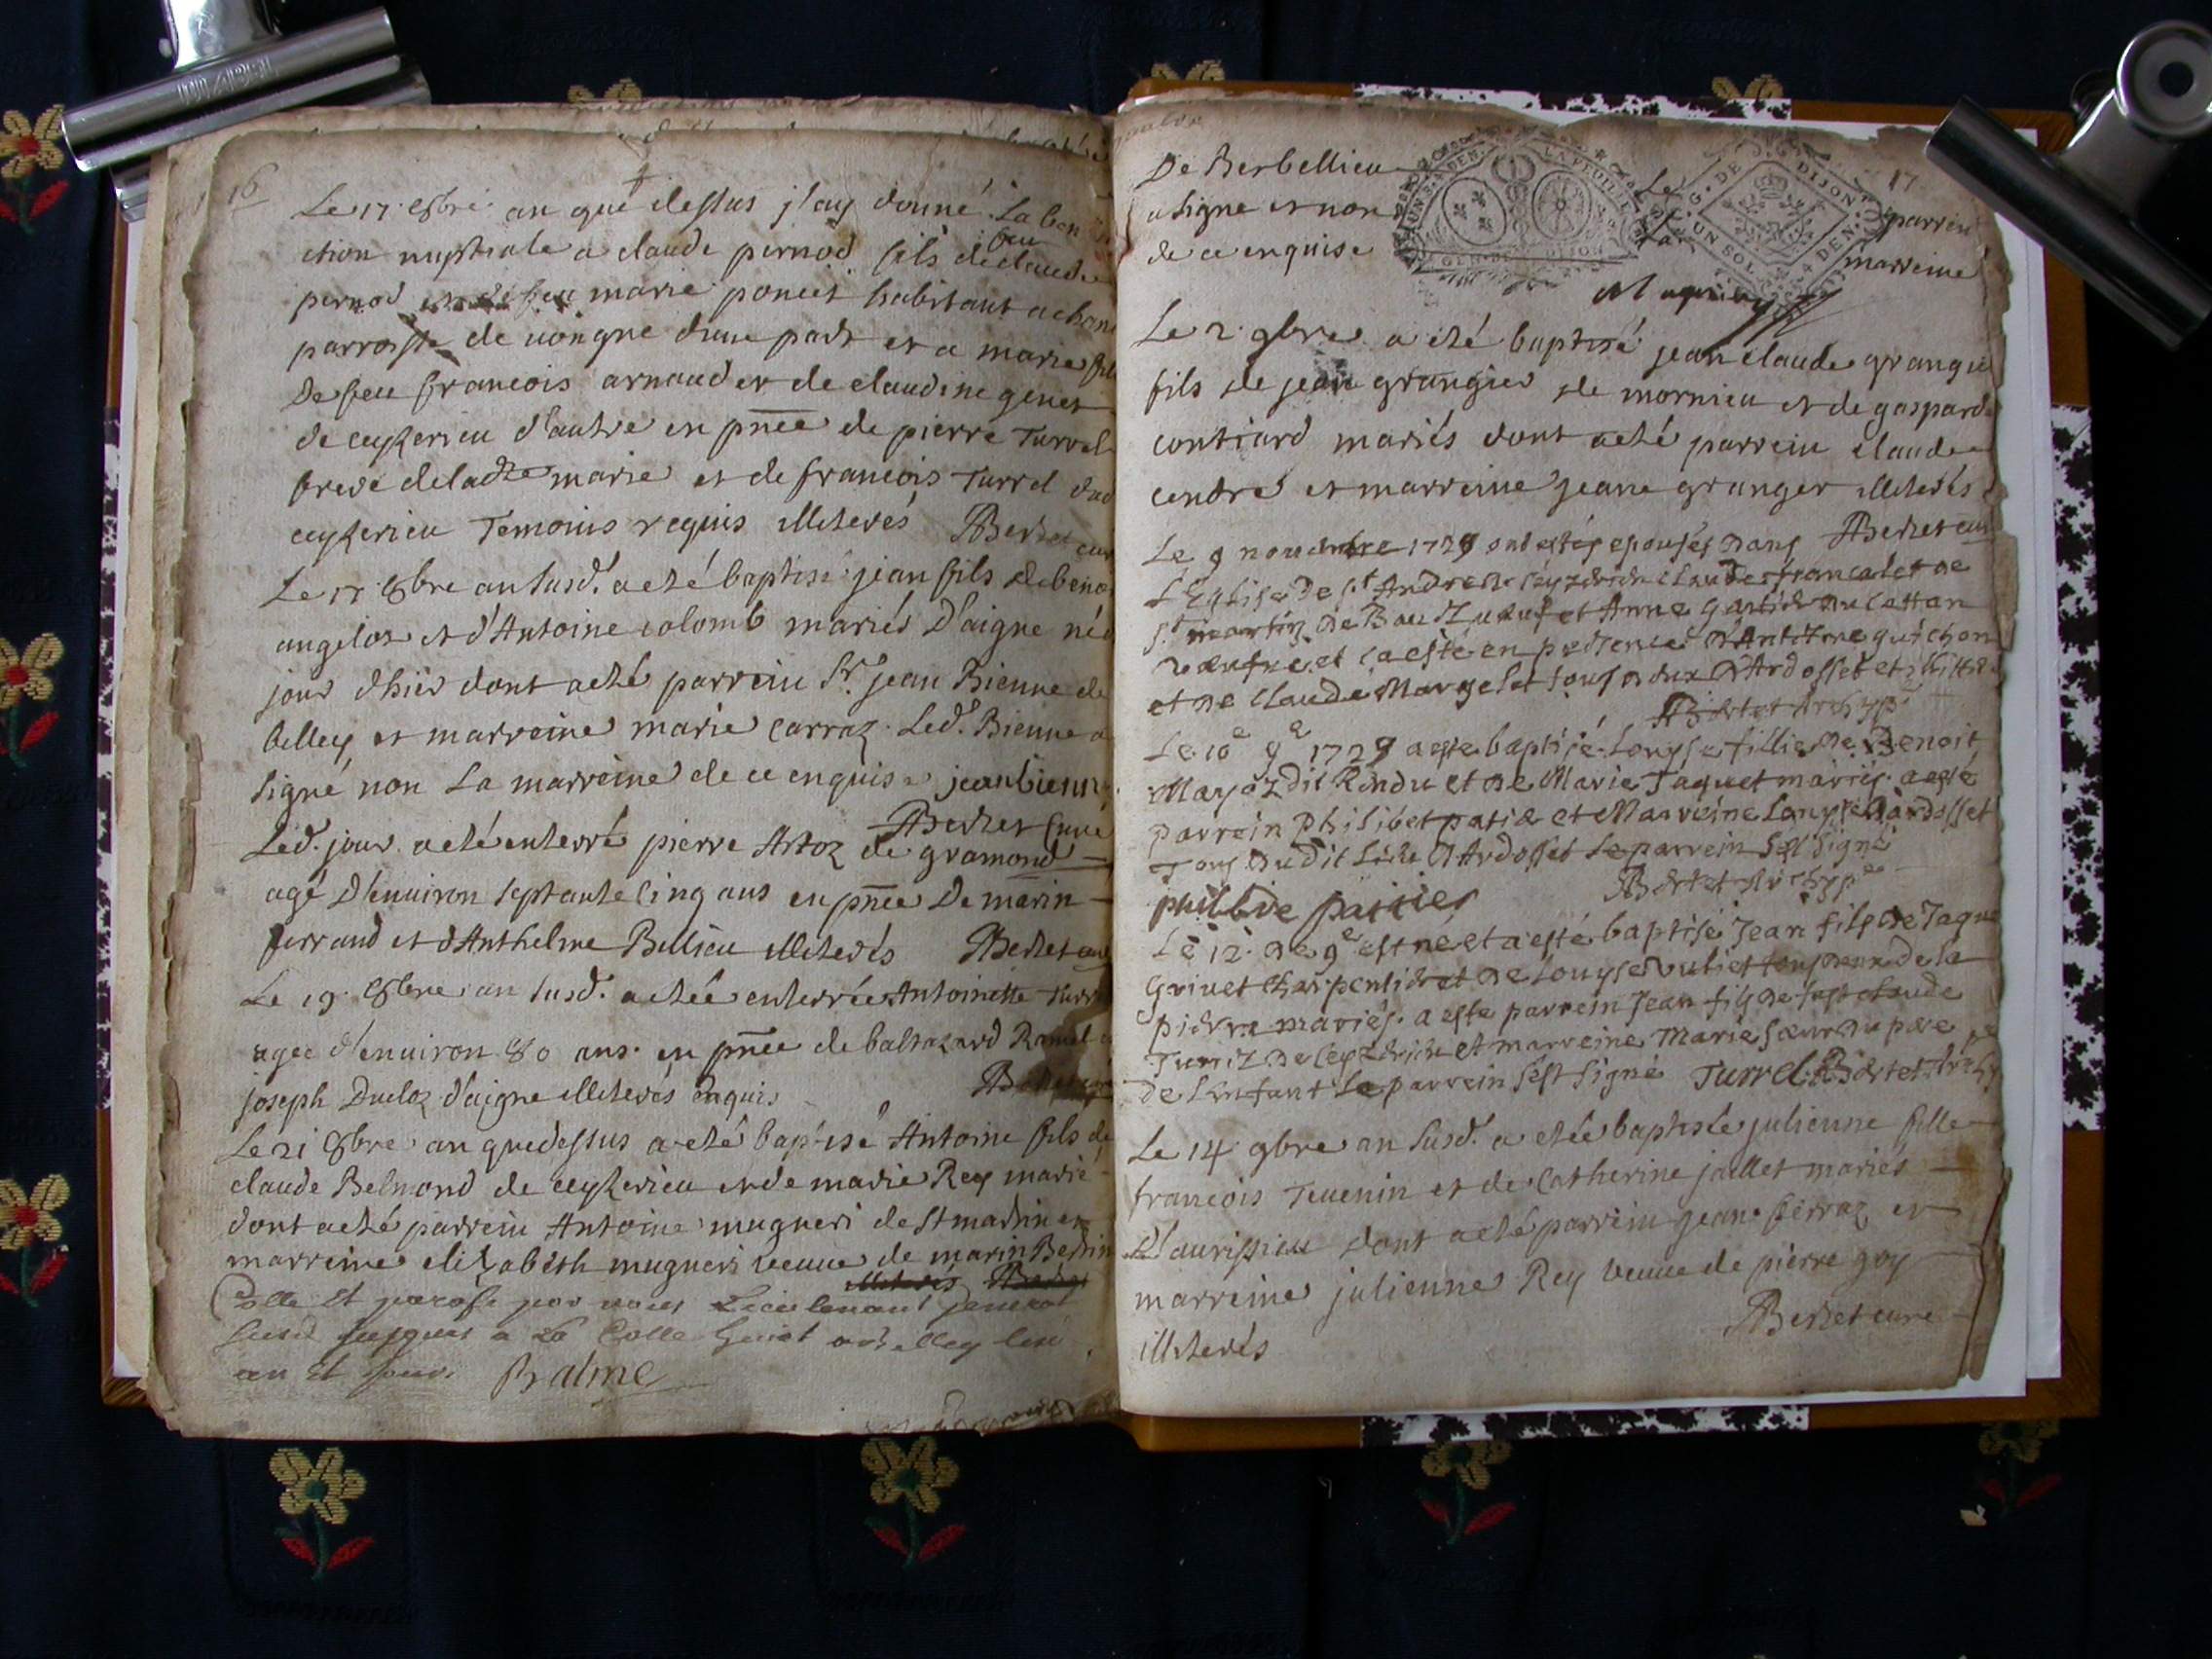 16
Le 17 8bre an que dessus j'ay donné La ben
ction nuptiale a claude pernod fils de feu claude
pernod et de feu marie poncet habitant a chan
parroisse de uongne d'une part et a marie fil
De feu francois arnaud et de claudine genet
de ceyzerieu d'autre en pnce de pierre Turrel
frere de ladte marie et de francois Turrel dud
ceyzerieu Temoins requis illiterés Bertet curé
Le 17 8bre an susd. a eté baptisé jean fils de beno
angelot et d'Antoine colomb mariés D'aigne né
jour d'hier dont a eté parrein Sr. jean Bienne de
belley et marreine marie carraz. Led. Bienne a
signé non La marreine de ce enquise jean bienne
Bertet Curé
Led. jour a eté enterré pierre Artoz de gramond
agé d'enuiron septante cinq ans en pnce De marin
ferrand et d'Anthelme Bullieu illiterés Bertet curé
Le 19 8bre an susd. a etée enterrée Antoinette turr
agée d'enuiron 80 ans en pnce de baltazard Ramel
joseph Ducloz d'aigne illiterés enquis Bertet
Le 21 8bre an que dessus a eté baptisé Antoine fils de
claude Belmond de ceyzerieu et de marie Rey marié
dont a eté parrein Antoine mugneri de St martin et
marreine elizabeth mugneri veuue de marin Bertin
illiterés Bertet
Cotté Et parafé par nous Lieutenant general
susd jusques a 26
an Et jour. Balme
17
De Berbellieu Le parrein
a signé et non La marreine
de ce enquise
GEN. DE DIJON
G. DE DIJON
UN SOL 4 DEN.
Le 2 9bre a eté baptisé jean claude grangie
fils de jean grangier de mornieu et de gasparde
contiard mariés dont a eté parrein claude
cendre et marreine jeane granger illiterés
Bertet curé
Le 9 nouembre 1729 ont estés epousés dans
L'Eglise De st Andre de ceyzerieu claude francalet de
St martin de Bau et Anne
et ca esté en presence d'Antoine guichon
et de claude Margelet tous deux d'Ardosset et
Bertet Archyp
Le 10e 9e 1729 a este baptisé Louyse fillie de Benoit
Mayoz dit Rondu et de Marie Jaquet mariés a esté
parrein Philibet patie et Marreine Louyse d'ardosset
Tous du dit Lieu d'Ardosset Le parrein s'est signé
philibe patiier Bertet Archyp
Le 12 de 9e est né et a esté baptisé Jean fils de Jaque
Griuet charpentier et de Louyse uuliet tous deux de la
pierre mariés. a este parrein Jean fils de fut claude
Turriz de ceyzerieu et marreine Marie sœur du pere
de L'enfant Le parrein s'est signé Turrel Bertet Archy
Le 14 9bre an susd. a etée baptisée julienne fille
francois Teuenin et de Catherine jallet mariés
d'aurissieu dont a eté parrein jean ferraz et
marreine julienne Rey veuue de pierre goy
illiterés Bertet curé